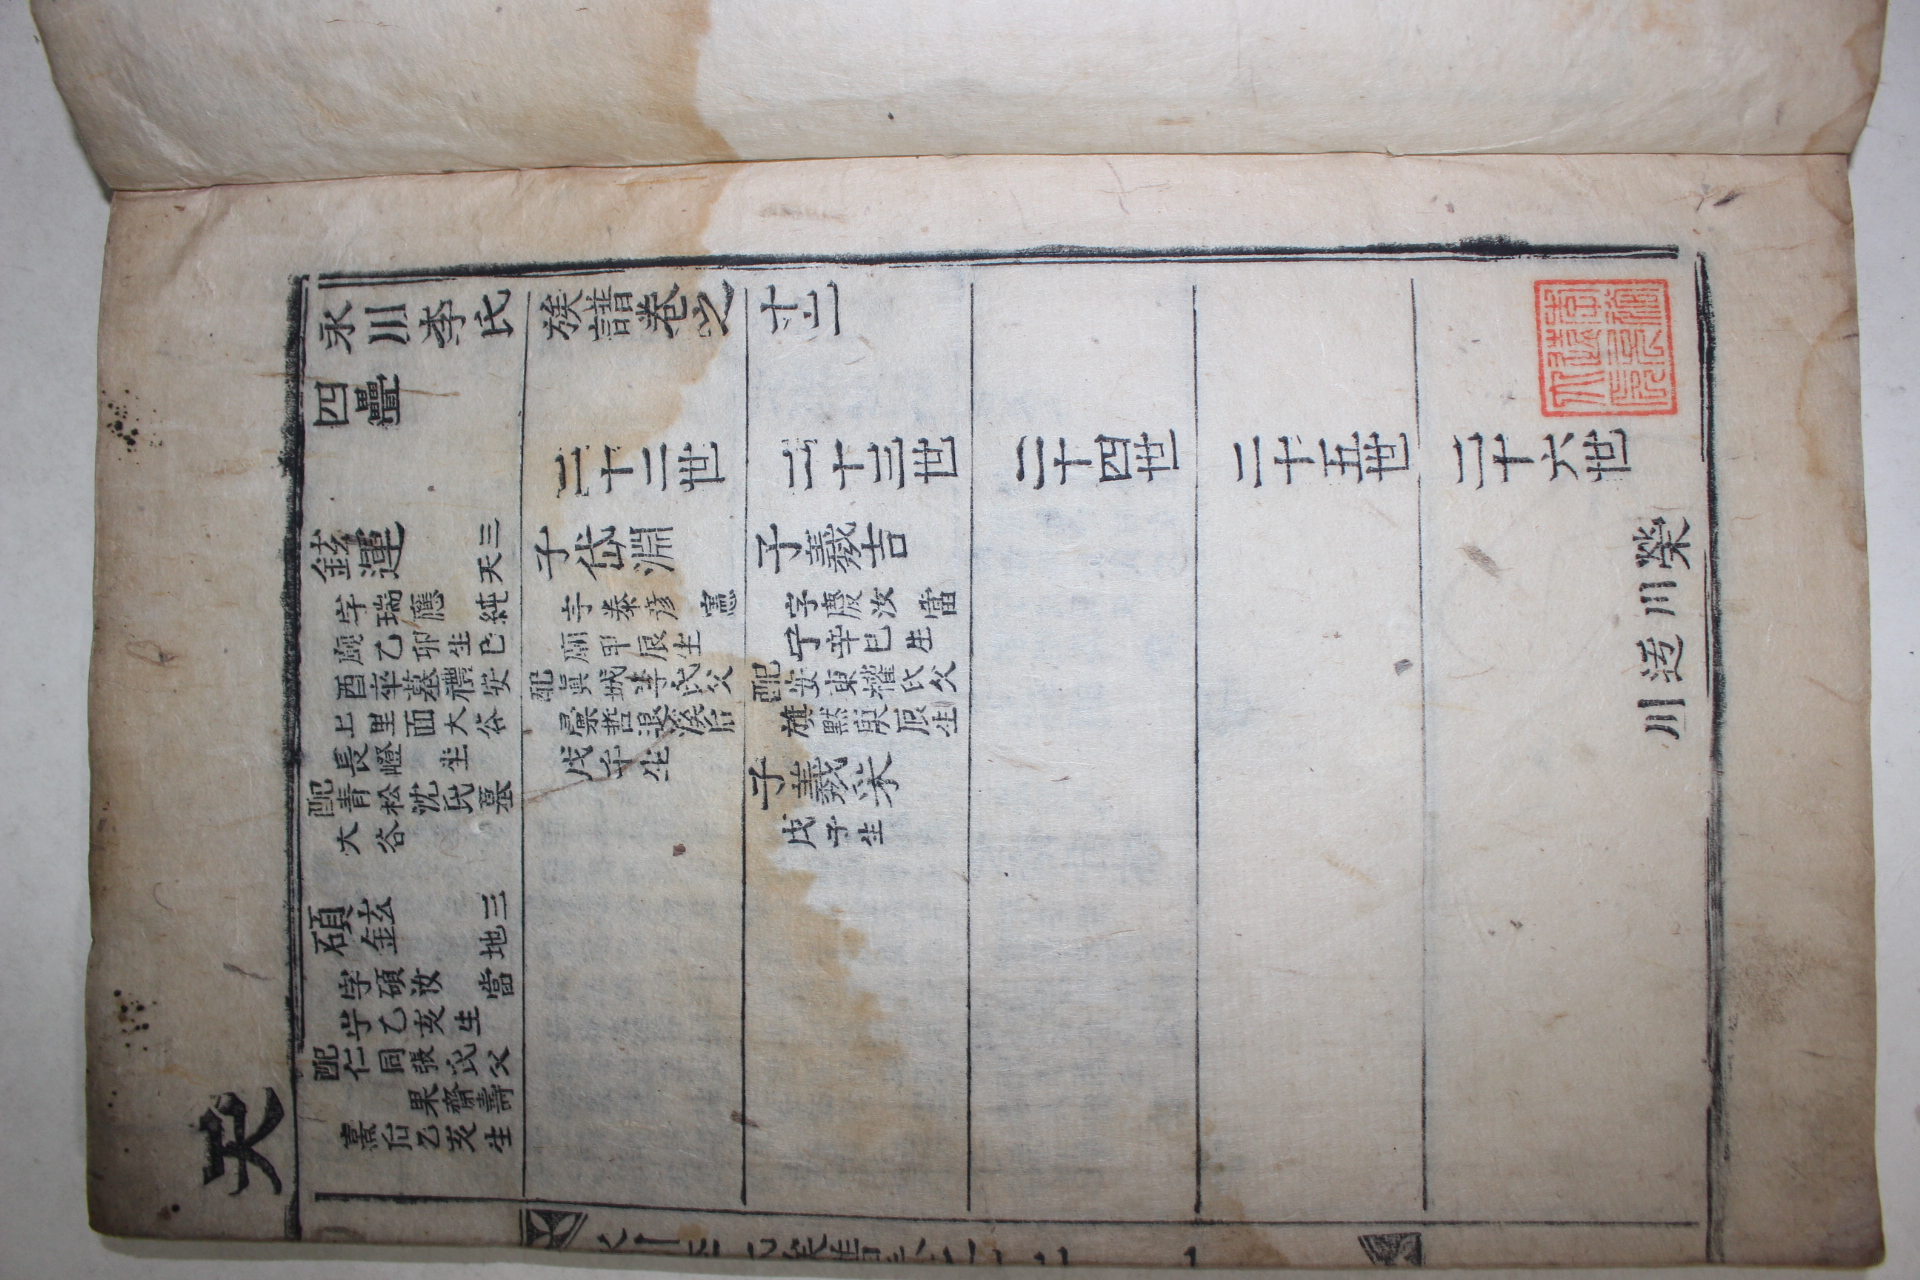 天
永川李氏族譜卷之十二
四疊
鉉運 三天
字瑞應 純
廟乙卯生巳
酉卒墓禮安
上里面大谷
長嶝 坐
配靑松沈氏墓
大谷
碩鉉 三地
字碩汝 當
宁乙亥生
配仁同張氏父
果齋壽
熹后乙亥生
二十二世
子岱淵
字泰彦 憲
廟甲辰生
配眞城李氏父
彙哲退溪后
戊午生
二十三世
子羲吉
字慶汝 當
宁辛巳生
配安東權氏父
旗黙庚辰生
子羲采
戊子生
二十四世
二十五世
二十六世
榮川
川